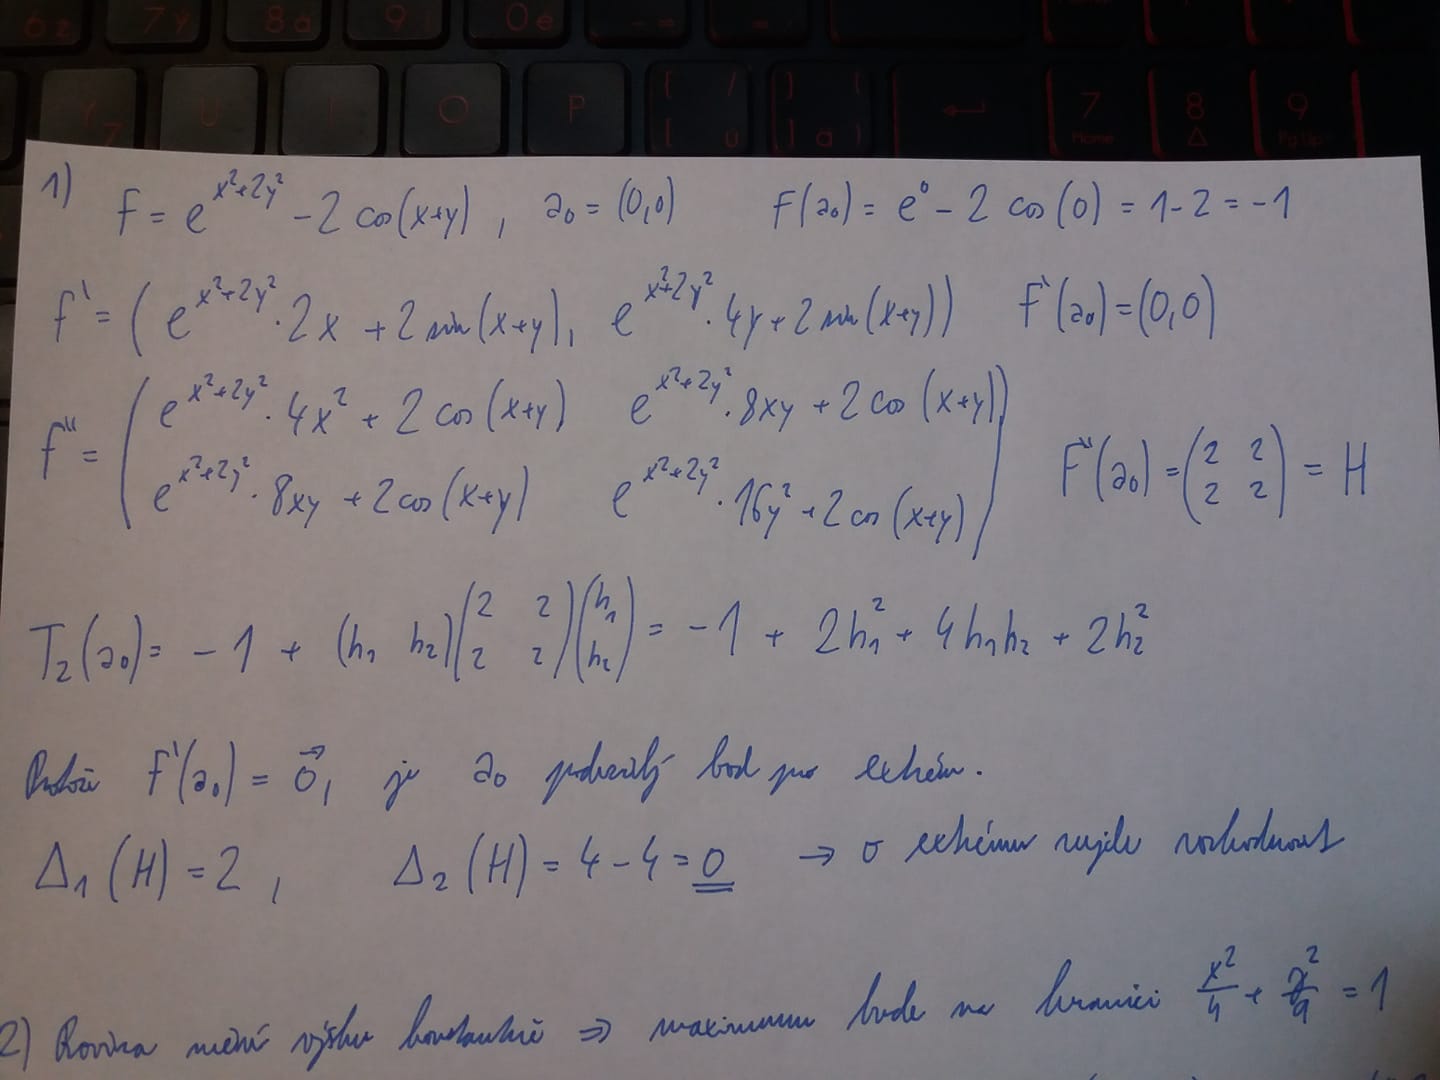 6 z 7 ý 8 á 9 í 0 é
Y Z U I O P [ / { ú ] ) } 7 Home 8 9 PgUp
1) f = e^{x²+2y²} - 2 cos(x+y), a₀ = (0,0) f(a₀) = e⁰ - 2 cos(0) = 1 - 2 = -1
f' = (e^{x²+2y²} · 2x + 2 sin(x+y), e^{x²+2y²} · 4y + 2 sin(x+y)) f'(a₀) = (0,0)
f'' = ( e^{x²+2y²} · 4x² + 2 cos(x+y) e^{x²+2y²} · 8xy + 2 cos(x+y)
e^{x²+2y²} · 8xy + 2 cos(x+y) e^{x²+2y²} · 16y² + 2 cos(x+y) ) f''(a₀) = (2 2 2 2) = H
T₂(a₀) = -1 + (h₁ h₂)(2 2 2 2)(h₁ h₂) = -1 + 2h₁² + 4h₁h₂ + 2h₂²
Protože f'(a₀) = o⃗, je a₀ podezřelý bod pro extrém.
Δ₁(H) = 2, Δ₂(H) = 4 - 4 = 0 → o extrému nejde rozhodnout
2) Rovina mění výšku konstantně ⇒ maximum bude na hranici x²/4 + y²/9 = 1